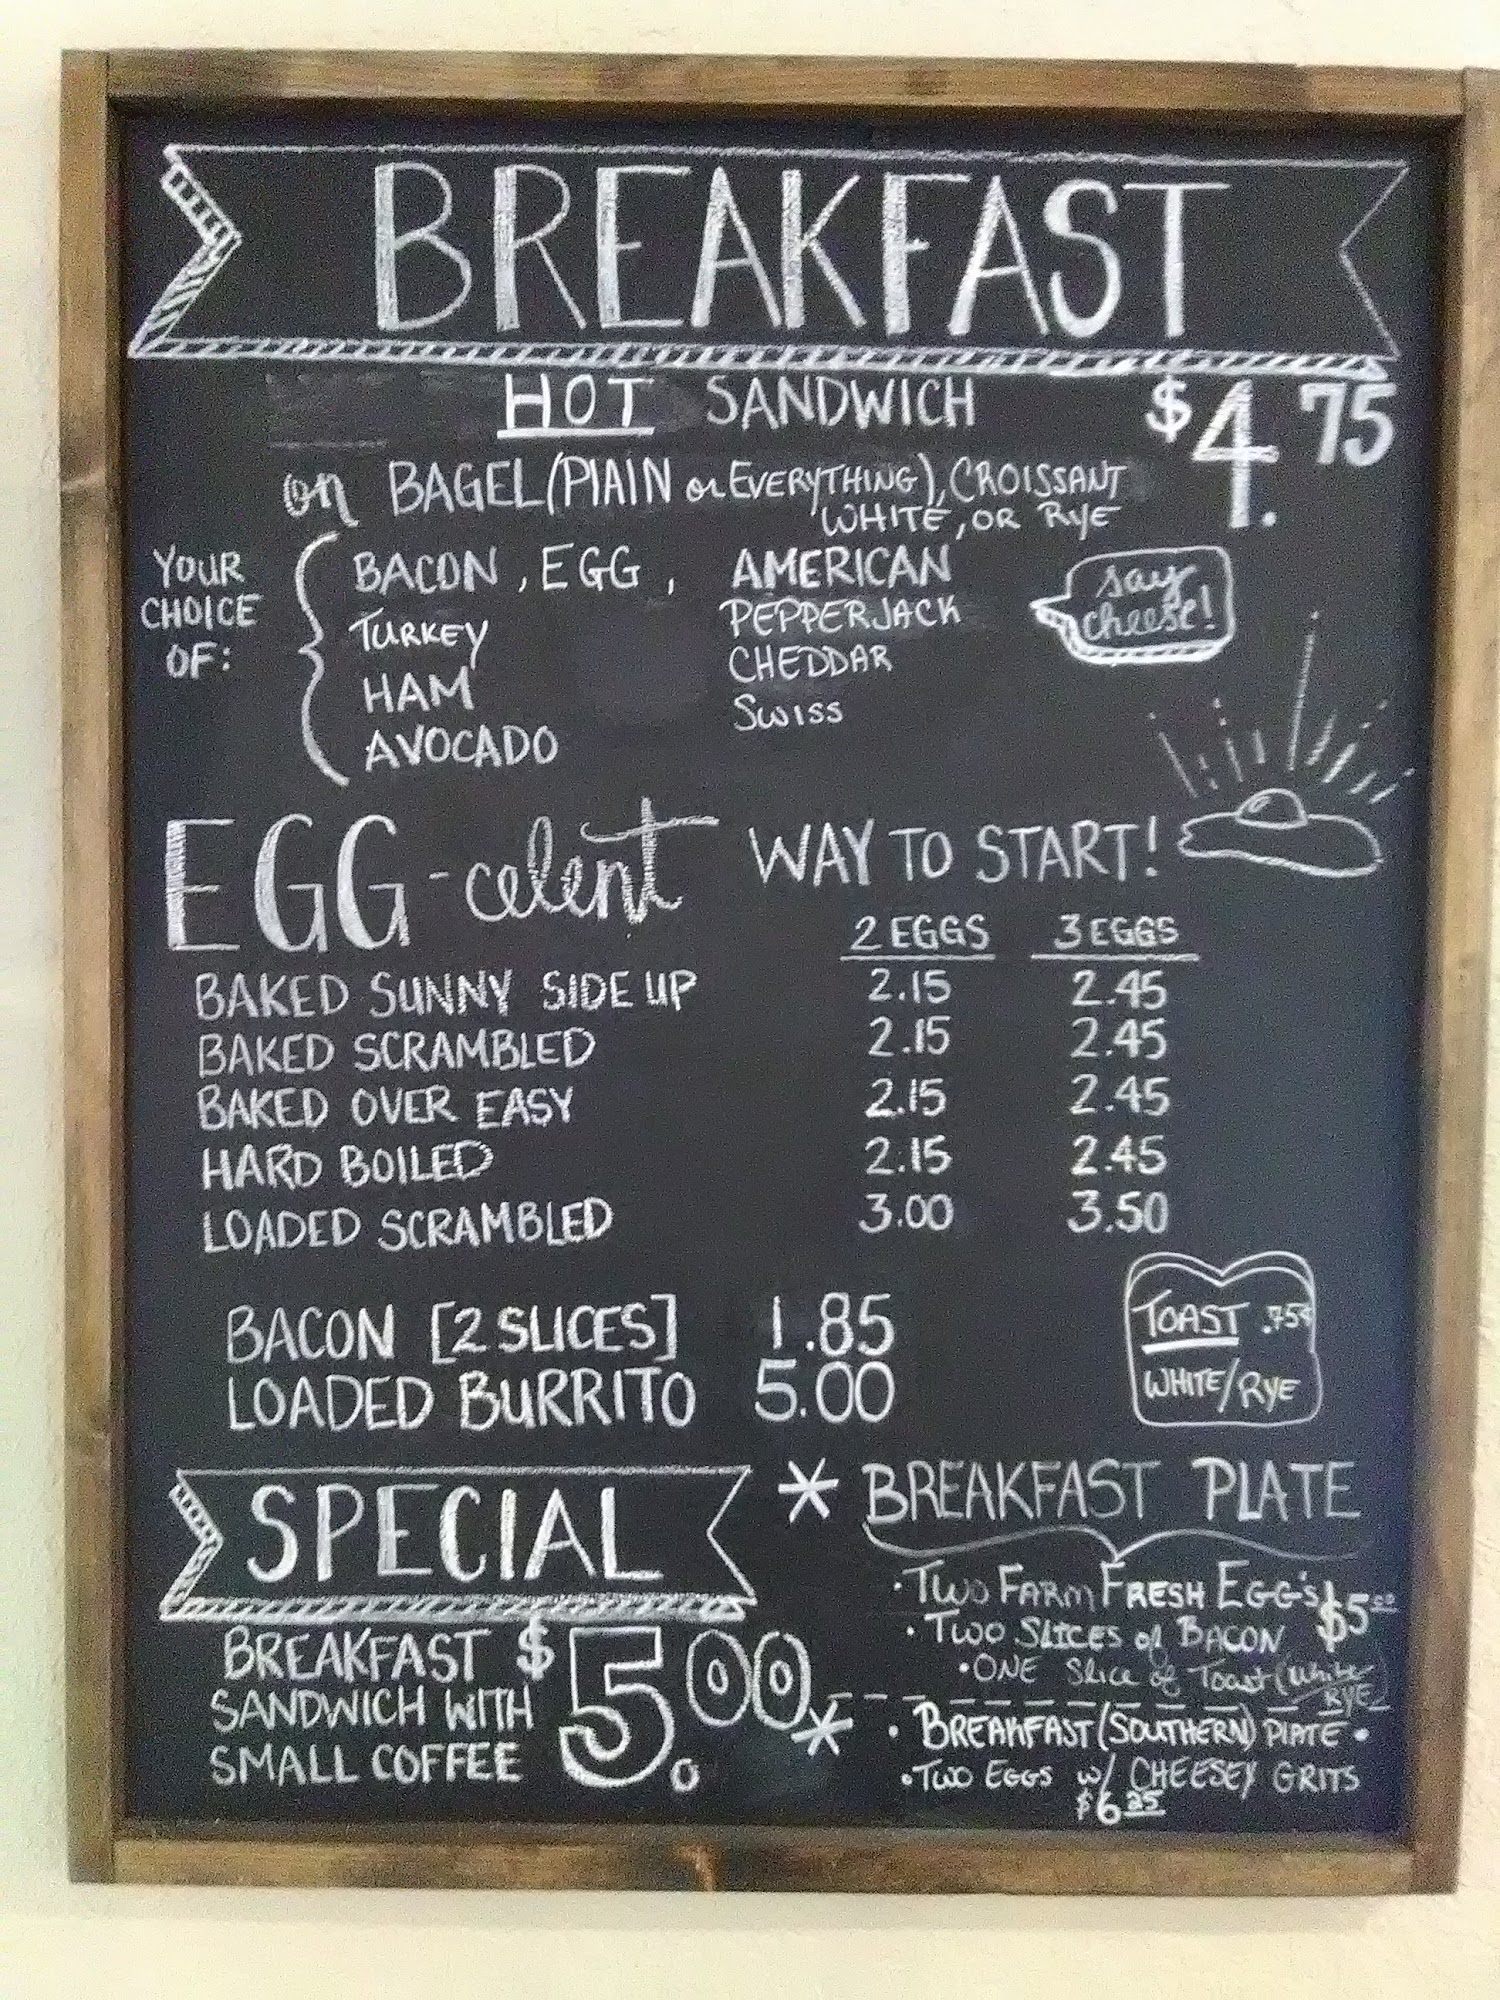 BREAKFAST
HOT SANDWICH $4.75
on BAGEL (PLAIN or EVERYTHING), CROISSANT
WHITE, OR RYE
YOUR CHOICE OF:
BACON, EGG, AMERICAN
TURKEY PEPPERJACK
HAM CHEDDAR
AVOCADO SWISS
say
cheese!
EGG-celent WAY TO START!
2 EGGS 3 EGGS
BAKED SUNNY SIDE UP 2.15 2.45
BAKED SCRAMBLED 2.15 2.45
BAKED OVER EASY 2.15 2.45
HARD BOILED 2.15 2.45
LOADED SCRAMBLED 3.00 3.50
BACON [2 SLICES] 1.85
LOADED BURRITO 5.00
TOAST .75¢
WHITE/RYE
SPECIAL
BREAKFAST $5.00
SANDWICH WITH
SMALL COFFEE
* BREAKFAST PLATE
• TWO FARM FRESH EGG'S
• TWO SLICES of BACON $5.00
• ONE Slice of Toast (White
RYE)
* • BREAKFAST (SOUTHERN) PLATE •
• TWO EGGS w/ CHEESEY GRITS
$6.25